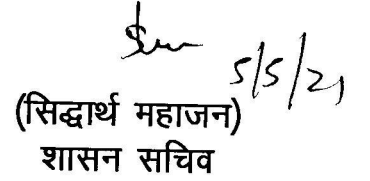 5/5/21
(सिद्धार्थ महाजन)
शासन सचिव